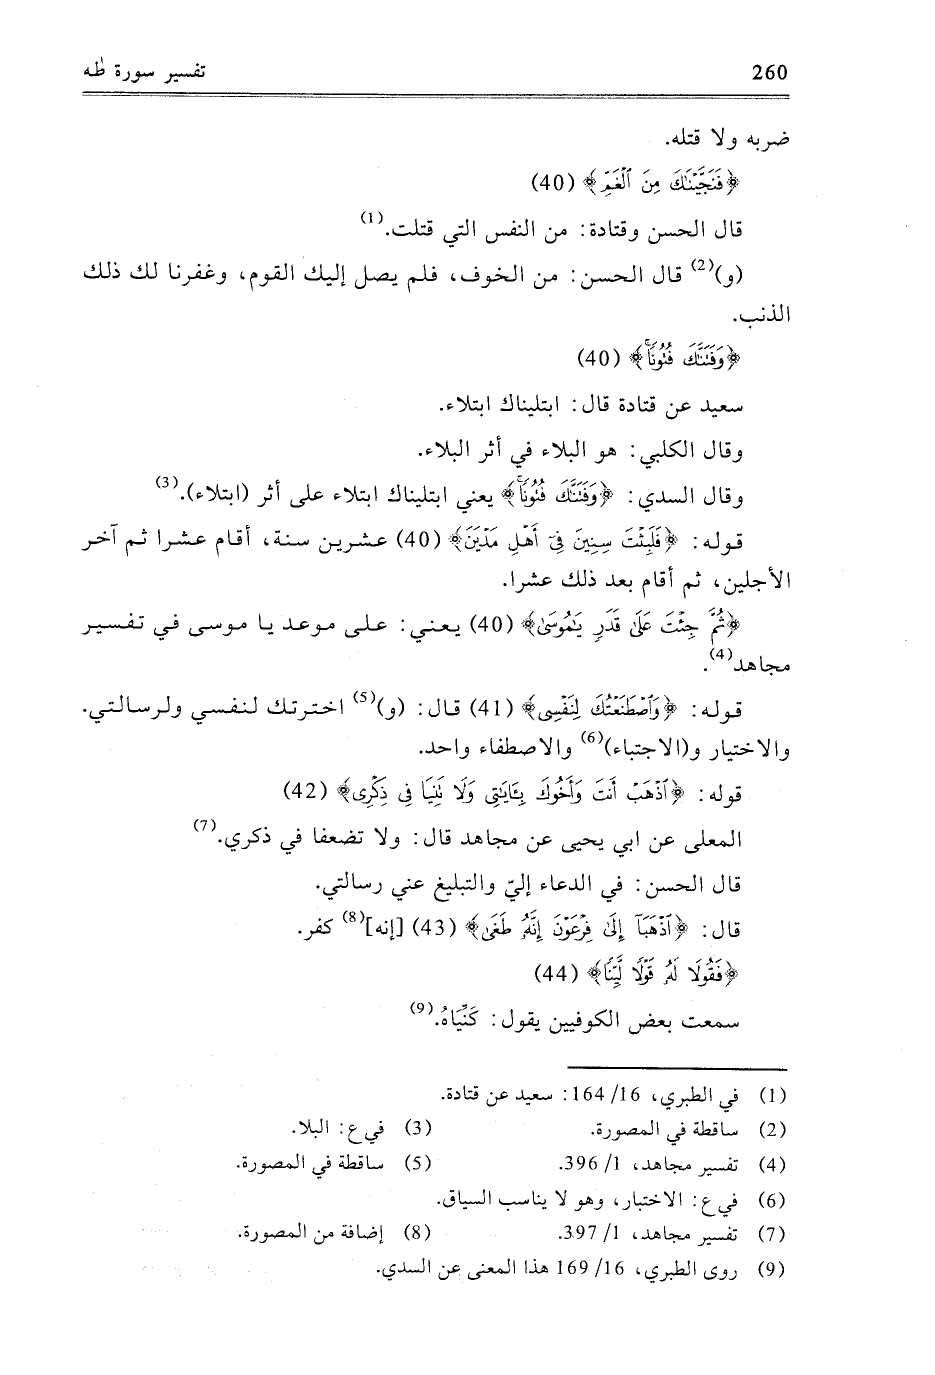 260
تفسير سورة طٰه
ضربه ولا قتله.
﴿فَنَجَّيْنَٰكَ مِنَ ٱلْغَمِّ﴾ (40)
قال الحسن وقتادة: من النفس التي قتلت.(1)
(و)(2) قال الحسن: من الخوف، فلم يصل إليك القوم، وغفرنا لك ذلك
الذنب.
﴿وَفَتَنَّٰكَ فُتُونًا﴾ (40)
سعيد عن قتادة قال: ابتليناك ابتلاء.
وقال الكلبي: هو البلاء في أثر البلاء.
وقال السدي: ﴿وَفَتَنَّٰكَ فُتُونًا﴾ يعني ابتليناك ابتلاء على أثر (ابتلاء).(3)
قوله: ﴿فَلَبِثْتَ سِنِينَ فِىٓ أَهْلِ مَدْيَنَ﴾ (40) عشرين سنة، أقام عشرا ثم آخر
الأجلين، ثم أقام بعد ذلك عشرا.
﴿ثُمَّ جِئْتَ عَلَىٰ قَدَرٍ يَٰمُوسَىٰ﴾ (40) يعني: على موعد يا موسى في تفسير
مجاهد(4).
قوله: ﴿وَٱصْطَنَعْتُكَ لِنَفْسِى﴾ (41) قال: (و)(5) اخترتك لنفسي ولرسالتي.
والاختيار و(الاجتباء)(6) والاصطفاء واحد.
قوله: ﴿ٱذْهَبْ أَنتَ وَأَخُوكَ بِـَٔايَٰتِى وَلَا تَنِيَا فِى ذِكْرِى﴾ (42)
المعلى عن ابي يحيى عن مجاهد قال: ولا تضعفا في ذكري.(7)
قال الحسن: في الدعاء إليّ والتبليغ عني رسالتي.
قال: ﴿ٱذْهَبَآ إِلَىٰ فِرْعَوْنَ إِنَّهُۥ طَغَىٰ﴾ (43) [إنه](8) كفر.
﴿فَقُولَا لَهُۥ قَوْلًا لَّيِّنًا﴾ (44)
سمعت بعض الكوفيين يقول: كَنِّيَاهُ.(9)
(1) في الطبري، 16/ 164: سعيد عن قتادة.
(2) ساقطة في المصورة. (3) في ع: البلا.
(4) تفسير مجاهد، 1/ 396. (5) ساقطة في المصورة.
(6) في ع: الاختبار، وهو لا يناسب السياق.
(7) تفسير مجاهد، 1/ 397. (8) إضافة من المصورة.
(9) روى الطبري، 16/ 169 هذا المعنى عن السدي.